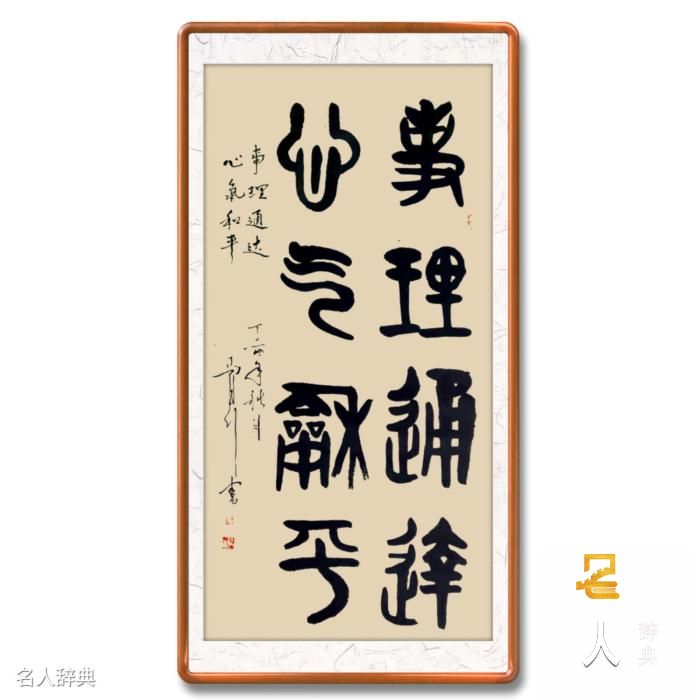 事理通達
心气龢平
事理通达
心氣和平
丁亥年秋月
书
名人辞典
名人辞典